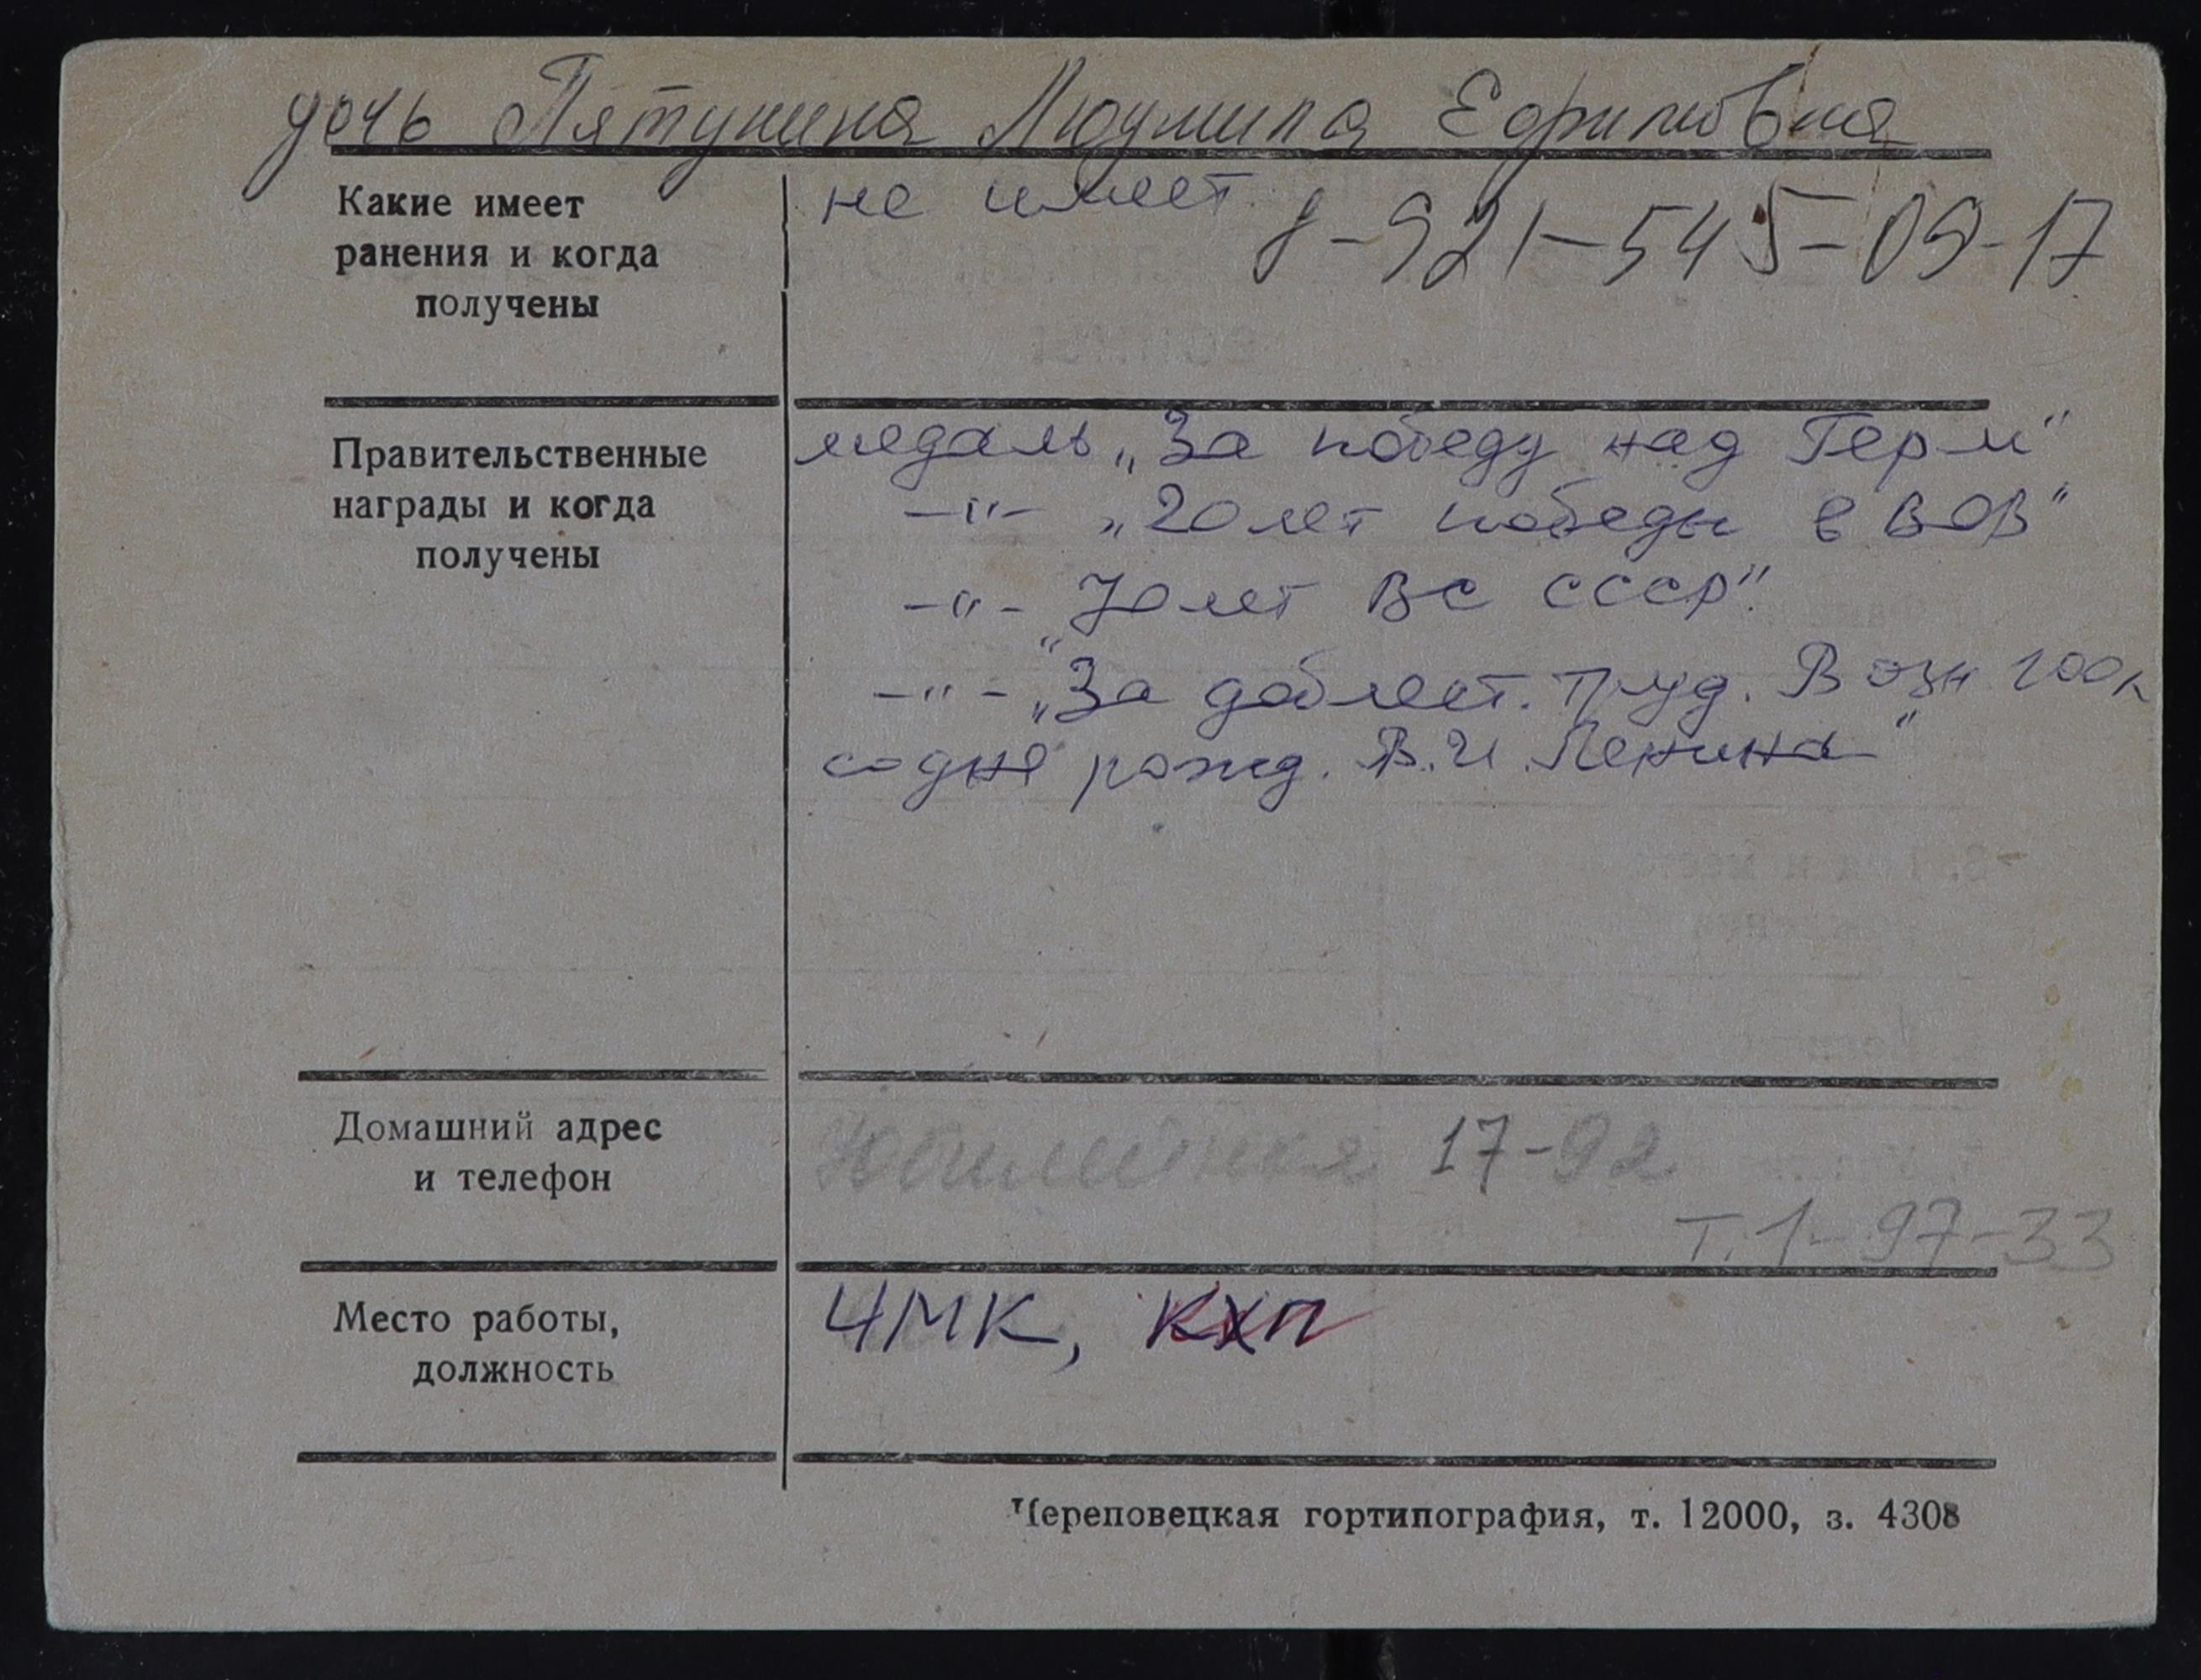 дочь Пятунина Людмила Ефимовна
Какие имеет
ранения и когда
получены
не имеет
8-921-545-09-17
Правительственные
награды и когда
получены
медаль „За победу над Герм“
—"— „20 лет победы в ВОВ“
—"— „70 лет ВС СССР“
—"— „За доблест. труд. В озн 100л
со дня рожд. В.И. Ленина“
Домашний адрес
и телефон
Юбилейная 17-92
т. 1-97-33
Место работы,
должность
ЧМК, КХП
Череповецкая гортипография, т. 12000, з. 4308